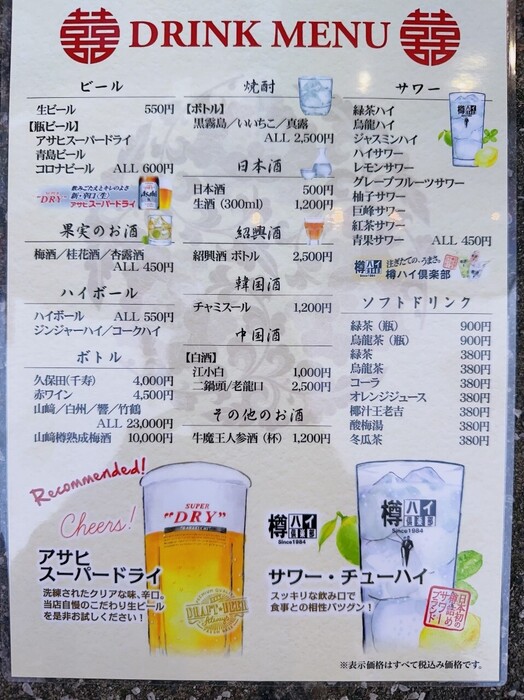 囍 DRINK MENU 囍
ビール
生ビール 550円
【瓶ビール】
アサヒスーパードライ
青島ビール
コロナビール ALL 600円
飲みごたえとキレのよさ
"DRY" 新・辛口〈生〉
アサヒスーパードライ
果実のお酒
梅酒／桂花酒／杏露酒
ALL 450円
ハイボール
ハイボール ALL 550円
ジンジャーハイ／コークハイ
ボトル
久保田(千寿) 4,000円
赤ワイン 4,500円
山崎／白州／響／竹鶴
ALL 23,000円
山崎樽熟成梅酒 10,000円
焼酎
【ボトル】
黒霧島／いいちこ／真露
ALL 2,500円
日本酒
日本酒 500円
生酒（300ml） 1,200円
紹興酒
紹興酒 ボトル 2,500円
韓国酒
チャミスール 1,200円
中国酒
【白酒】
江小白 1,000円
二鍋頭／老龍口 2,500円
その他のお酒
牛魔王人参酒（杯） 1,200円
サワー
緑茶ハイ
烏龍ハイ
ジャスミンハイ
ハイサワー
レモンサワー
グレープフルーツサワー
柚子サワー
巨峰サワー
紅茶サワー
青果サワー ALL 450円
樽ハイ
注ぎたての、うまさ。
樽ハイ倶楽部
ソフトドリンク
緑茶（瓶） 900円
烏龍茶（瓶） 900円
緑茶 380円
烏龍茶 380円
コーラ 380円
オレンジジュース 380円
椰汁王老吉 380円
酸梅湯 380円
冬瓜茶 380円
Recommended!
Cheers!
SUPER
"DRY"
アサヒ
スーパードライ
洗練されたクリアな味、辛口。
当店自慢のこだわり生ビール
を是非お試しください！
DRAFT BEER
樽ハイ倶楽部
Since1984
樽ハイ倶楽部
Since1984
サワー・チューハイ
スッキリな飲み口で
食事との相性バツグン！
日本初の
樽詰め
サワー
ブランド
※表示価格はすべて税込み価格です。